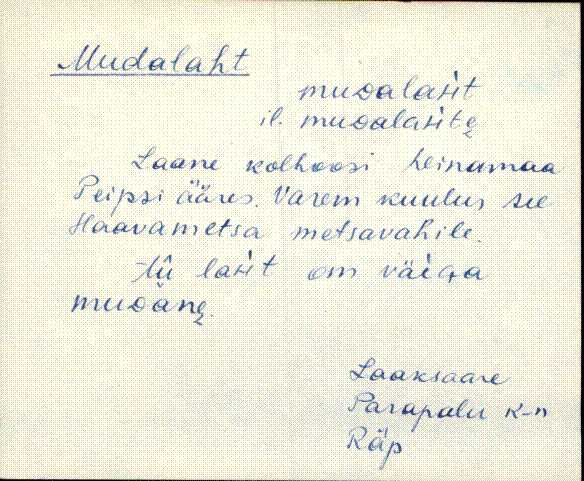 Mudalaht
muᴅalaʜt
il. muᴅalaʜtę
Laane kolhoosi heinamaa
Peipsi ääres. Varem kuulus see
Haavametsa metsavahile.
tū laʜt om väiɢa
muᴅänę.
Laaksaare
Parapalu k-n
Räp